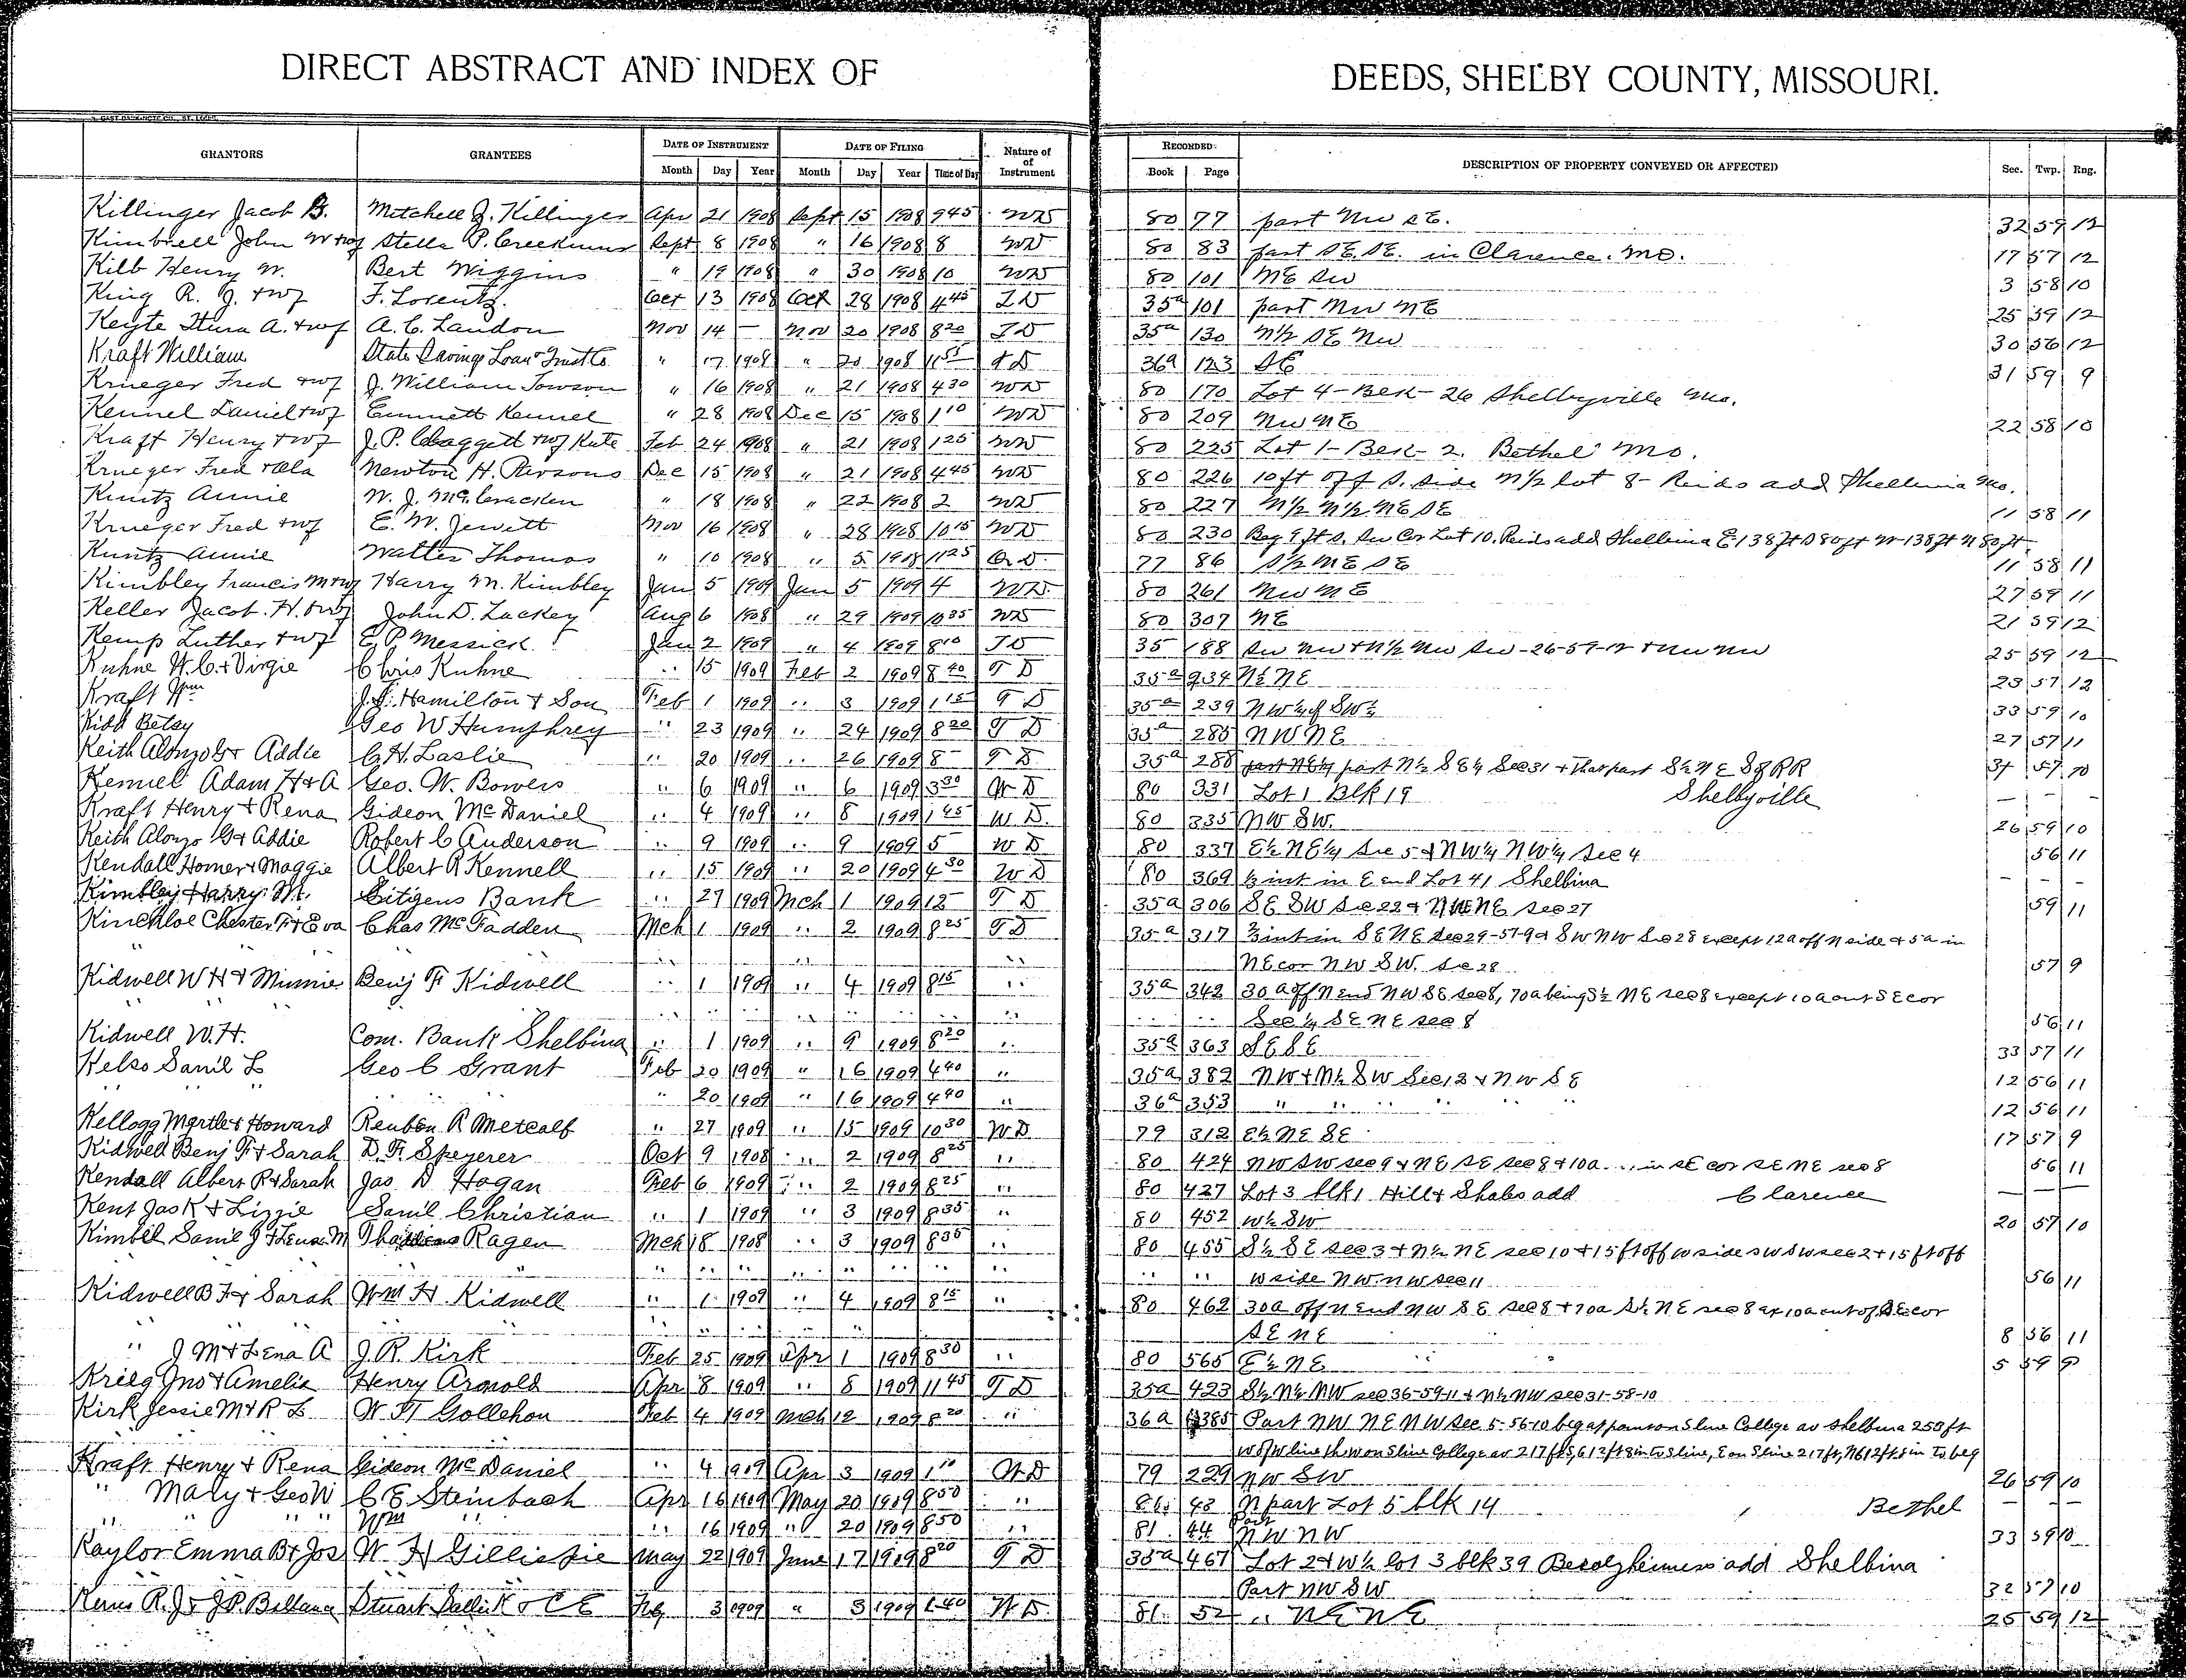 DIRECT ABSTRACT AND INDEX OF DEEDS, SHELBY COUNTY, MISSOURI.
GRANTORS GRANTEES DATE OF INSTRUMENT DATE OF FILING Nature of of Instrument RECORDED DESCRIPTION OF PROPERTY CONVEYED OR AFFECTED Sec. Twp. Rng.
Month Day Year Month Day Year Time of Day Book Page
Killinger Jacob B. Mitchell J. Killinger Apr 21 1908 Sept 15 1908 9 45 WD 80 77 part NW SE. 32 59 12
Kimbrell John W + wf Stella P. Creekmur Sept 8 1908 " 16 1908 8 WD 80 83 part SE. SE. in Clarence. Mo. 17 57 12
Kilb Henry W. Bert Wiggins " 19 1908 " 30 1908 10 WD 80 101 NE SW 3 58 10
King R. J. + wf F. Lorentz. Oct 13 1908 Oct 28 1908 4 45 TD 35a 101 part NW NE 25 59 12
Keyte A. + wf A. C. Landon Nov 14 — Nov 20 1908 8 20 TD 35a 130 N½ SE NW 30 56 12
Kraft William State Savings Loan + Trust Co " 17 1908 " 20 1908 11 55 TD 36a 123 SE 31 59 9
Krueger Fred + wf J. William Towson " 16 1908 " 21 1908 4 30 WD 80 170 Lot 4 - Blk - 26 Shelbyville Mo.
Kennel Daniel + wf Emmett Kennel " 28 1908 Dec 15 1908 1 10 WD 80 209 NW NE 22 58 10
Kraft Henry + wf J. P. Claggett + wf Kate Feb 24 1908 " 21 1908 1 25 WD 80 225 Lot 1 - Blk - 2. Bethel Mo.
Krueger Fred + Ola Newton H. Parsons Dec 15 1908 " 21 1908 4 45 WD 80 226 10 ft off S. side N½ lot 8 - Reids add Shelbina Mo.
Kuntz Annie W. J. McCracken " 18 1908 " 22 1908 2 WD 80 227 N½ N½ NE SE 11 58 11
Krueger Fred + wf E. W. Jewett Nov 16 1908 " 28 1908 10 15 WD 80 230 Beg 9 ft S. SW Cor Lot 10. Reids add Shelbina E 138 ft S 80 ft W 138 ft N 80 ft.
Kuntz Annie Walter Thomas " 10 1908 " 5 1908 11 25 Q D. 77 86 S½ NE SE 11 58 11
Kimbley Francis M + wf Harry M. Kimbley Jan 5 1909 Jan 5 1909 4 WD. 80 261 NW NE 27 59 11
Keller Jacob. H. + wf John D. Lackey Aug 6 1908 " 29 1909 10 35 WD 80 307 NE 21 59 12
Kemp Luther + wf E. P. Messick Jan 2 1909 " 4 1909 8 10 TD 35 188 SW NW + N½ NW SW - 26-59-12 + NW NW 25 59 12
Kuhne H. C. + Virgie Chris Kuhne " 15 1909 Feb 2 1909 8 40 T D 35a 234 N½ NE 23 57 12
Kraft Wm J. F. Hamilton + Son Feb 1 1909 " 3 1909 1 15 T D 35a 239 NW¼ of SW¼ 33 59 10
Kidd Betsy Geo W Humphrey " 23 1909 " 24 1909 8 20 T D 35a 285 NW NE 27 57 11
Keith Alonzo G + Addie C. H. Laslie " 20 1909 " 26 1909 8 — T D 35a 288 part NE¼ part N½ SE¼ Sec 31 + that part S½ NE S of RR 31 57 10
Kennel Adam H + A Geo. W. Bowers " 6 1909 " 6 1909 3 30 W D 80 331 Lot 1 Blk 19 Shelbyville — — —
Kraft Henry + Rena Gideon McDaniel " 4 1909 " 8 1909 1 45 W D. 80 335 NW SW. 26 59 10
Keith Alonzo G + Addie Robert C Anderson " 9 1909 " 9 1909 5 W D 80 337 E½ NE¼ Sec 5 + NW¼ NW¼ Sec 4 56 11
Kendall Homer + Maggie Albert R Kennell " 15 1909 " 20 1909 4 30 W D 80 369 ½ int in E end Lot 41 Shelbina - - -
Kimbley Harry. M. Citizens Bank " 27 1909 Mch 1 1909 12 — T D 35a 306 SE SW Sec 22 + NW NE Sec 27 59 11
Kincheloe Chester F + Eva Chas McFadden Mch 1 1909 " 2 1909 8 25 T D 35a 317 ½ int in SE NE Sec 29-57-9 + SW NW Sec 28 except 12a off N side + 5a in
NE cor NW SW. Sec 28 57 9
Kidwell W H + Minnie Benj F Kidwell " 1 1909 " 4 1909 8 15 " 35a 342 30 a off N end NW SE sec 8, 70a being S½ NE sec 8 except 10a out SE cor
Sec ¼ SE NE sec 8 56 11
Kidwell W. H. Com. Bank Shelbina " 1 1909 " 9 1909 8 20 " 35a 363 SE SE 33 57 11
Kelso Saml L Geo C Grant Feb 20 1909 " 16 1909 4 40 " 35a 382 NW + N½ SW Sec 12 + NW SE 12 56 11
" " " " 20 1909 " 16 1909 4 40 " 36a 353 " " " " " 12 56 11
Kellogg Myrtle + Howard Reuben R Metcalf " 27 1909 " 15 1909 10 30 W D 79 312 E½ NE SE 17 57 9
Kidwell Benj F + Sarah D. F. Speyerer Oct 9 1908 " 2 1909 8 25 " 80 424 NW SW sec 9 + NE SE sec 8 + 10a in SE cor SE NE sec 8 56 11
Kendall Albert R + Sarah Jas D Hogan Feb 6 1909 " 2 1909 8 25 " 80 427 Lot 3 blk 1 Hill + Shales add Clarence — — —
Kent Jas K + Lizzie Saml Christian " 1 1909 " 3 1909 8 35 " 80 452 W½ SW 20 57 10
Kimbel Saml J + Lena M Ragen Mch 18 1908 " 3 1909 8 35 " 80 455 S½ SE sec 3 + N½ NE sec 10 + 15 ft off W side SW SW sec 2 + 15 ft off
W side NW NW sec 11 56 11
Kidwell B F + Sarah Wm H. Kidwell " 1 1909 " 4 1909 8 15 " 80 462 30a off N end NW SE sec 8 + 70a S½ NE sec 8 ex 10a out of SE cor
SE NE 8 56 11
" J M + Lena A J. R. Kirk Feb 25 1909 Apr 1 1909 8 30 " 80 565 E½ NE 5 59 9
Krieg Jno + Amelia Henry Arnold Apr 8 1909 " 8 1909 11 45 T D 35a 423 S½ N½ NW sec 36-59-11 + N½ NW sec 31-58-10
Kirk Jessie M + R L W H Gollehon Feb 4 1909 Mch 12 1909 8 20 " 36a 385 Part NW NE NW Sec 5-56-10 beg at point on S line College av Shelbina 250 ft
W of W line th W on S line College av 217 ft S, 612 ft 8 in to S line, E on S line 217 ft, N 612 ft 8 in to beg
Kraft Henry + Rena Gideon McDaniel " 4 1909 Apr 3 1909 1 10 W D 79 229 NW SW 26 59 10
" Mary + Geo W C E Steinbach Apr 16 1909 May 20 1909 8 50 " 81 43 N part Lot 5 blk 14 Bethel — — —
" " " " Wm " 16 1909 " 20 1909 8 50 " 81 44 Part NW NW 33 59 10
Kaylor Emma B + Jos W. H Gillispie May 22 1909 June 17 1909 8 20 T D 35a 467 Lot 2 + W½ lot 3 blk 39 Berolzheimers add Shelbina
Part NW SW 32 57 10
R. J. + J. P. Stuart + C E 3 1909 " 3 1909 1 40 W D. 81 52 " NE NE 25 59 12